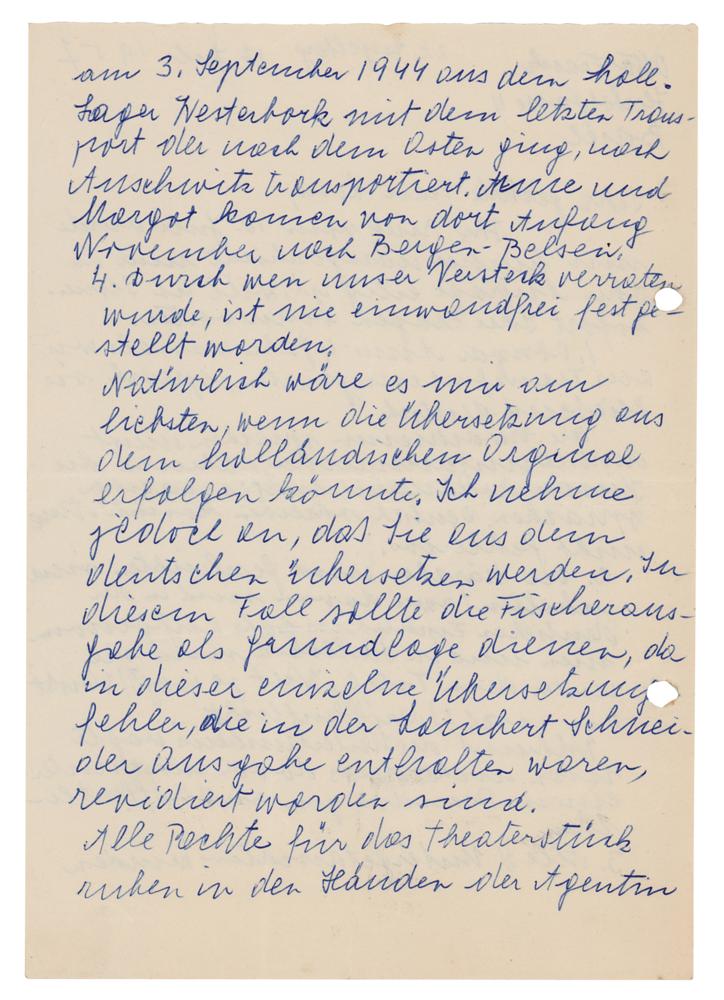 am 3. September 1944 aus dem holl.
Lager Westerbork mit dem letzten Trans-
port der nach dem Osten ging, nach
Auschwitz transportiert. Anne und
Margot kamen von dort Anfang
November nach Bergen-Belsen.
4. Durch wen unser Versteck verraten
wurde, ist nie einwandfrei festge-
stellt worden.
Natürlich wäre es mir am
liebsten, wenn die Übersetzung aus
dem holländischen Orginal
erfolgen könnte. Ich nehme
jedoch an, daß Sie aus dem
deutschen übersetzen werden. In
diesem Fall sollte die Fischeraus-
gabe als Grundlage dienen, da
in dieser einzelne Übersetzungs
fehler, die in der Lambert Schnei-
der Ausgabe enthalten waren,
revidiert worden sind.
Alle Rechte für das Theaterstück
ruhen in den Händen der Agentin